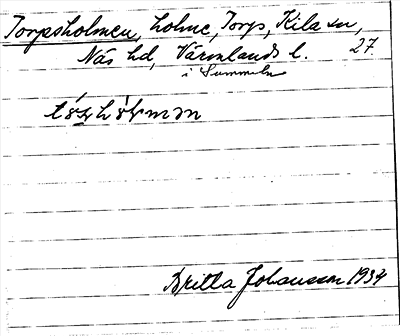 Torpsholmen, holme, Torp, Kila sn,
Näs hd, Värmlands l. 27
i Summeln
Britta Johansson 1934